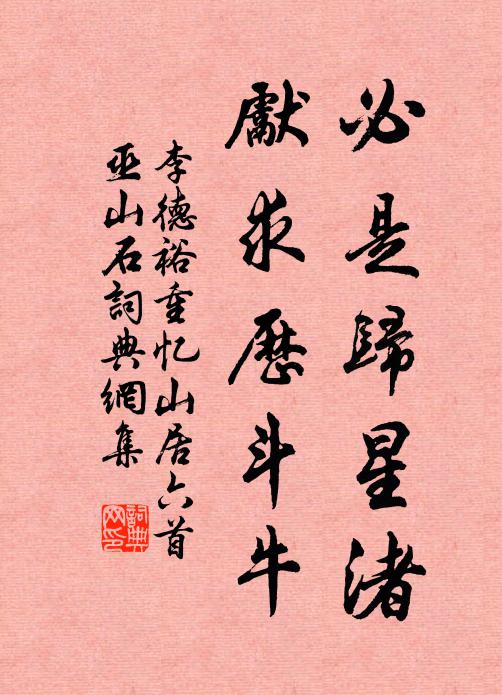 必是歸星渚
獻求歷斗牛
李德裕重忆山居六首
巫山石詞典網集
詞典
网印